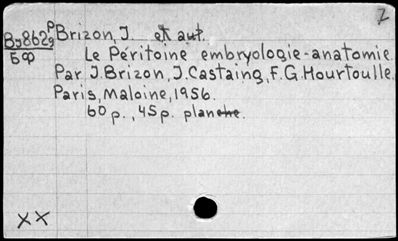 Z
Ву862э р Brizon, J. et aut.
БФ Le Péritoine embryologie-anatomie.
Par J. Brizon, J. Castaing, F.G. Hourtoulle.
Paris, Maloine, 1956.
60 p., 45 p. planche.
XX